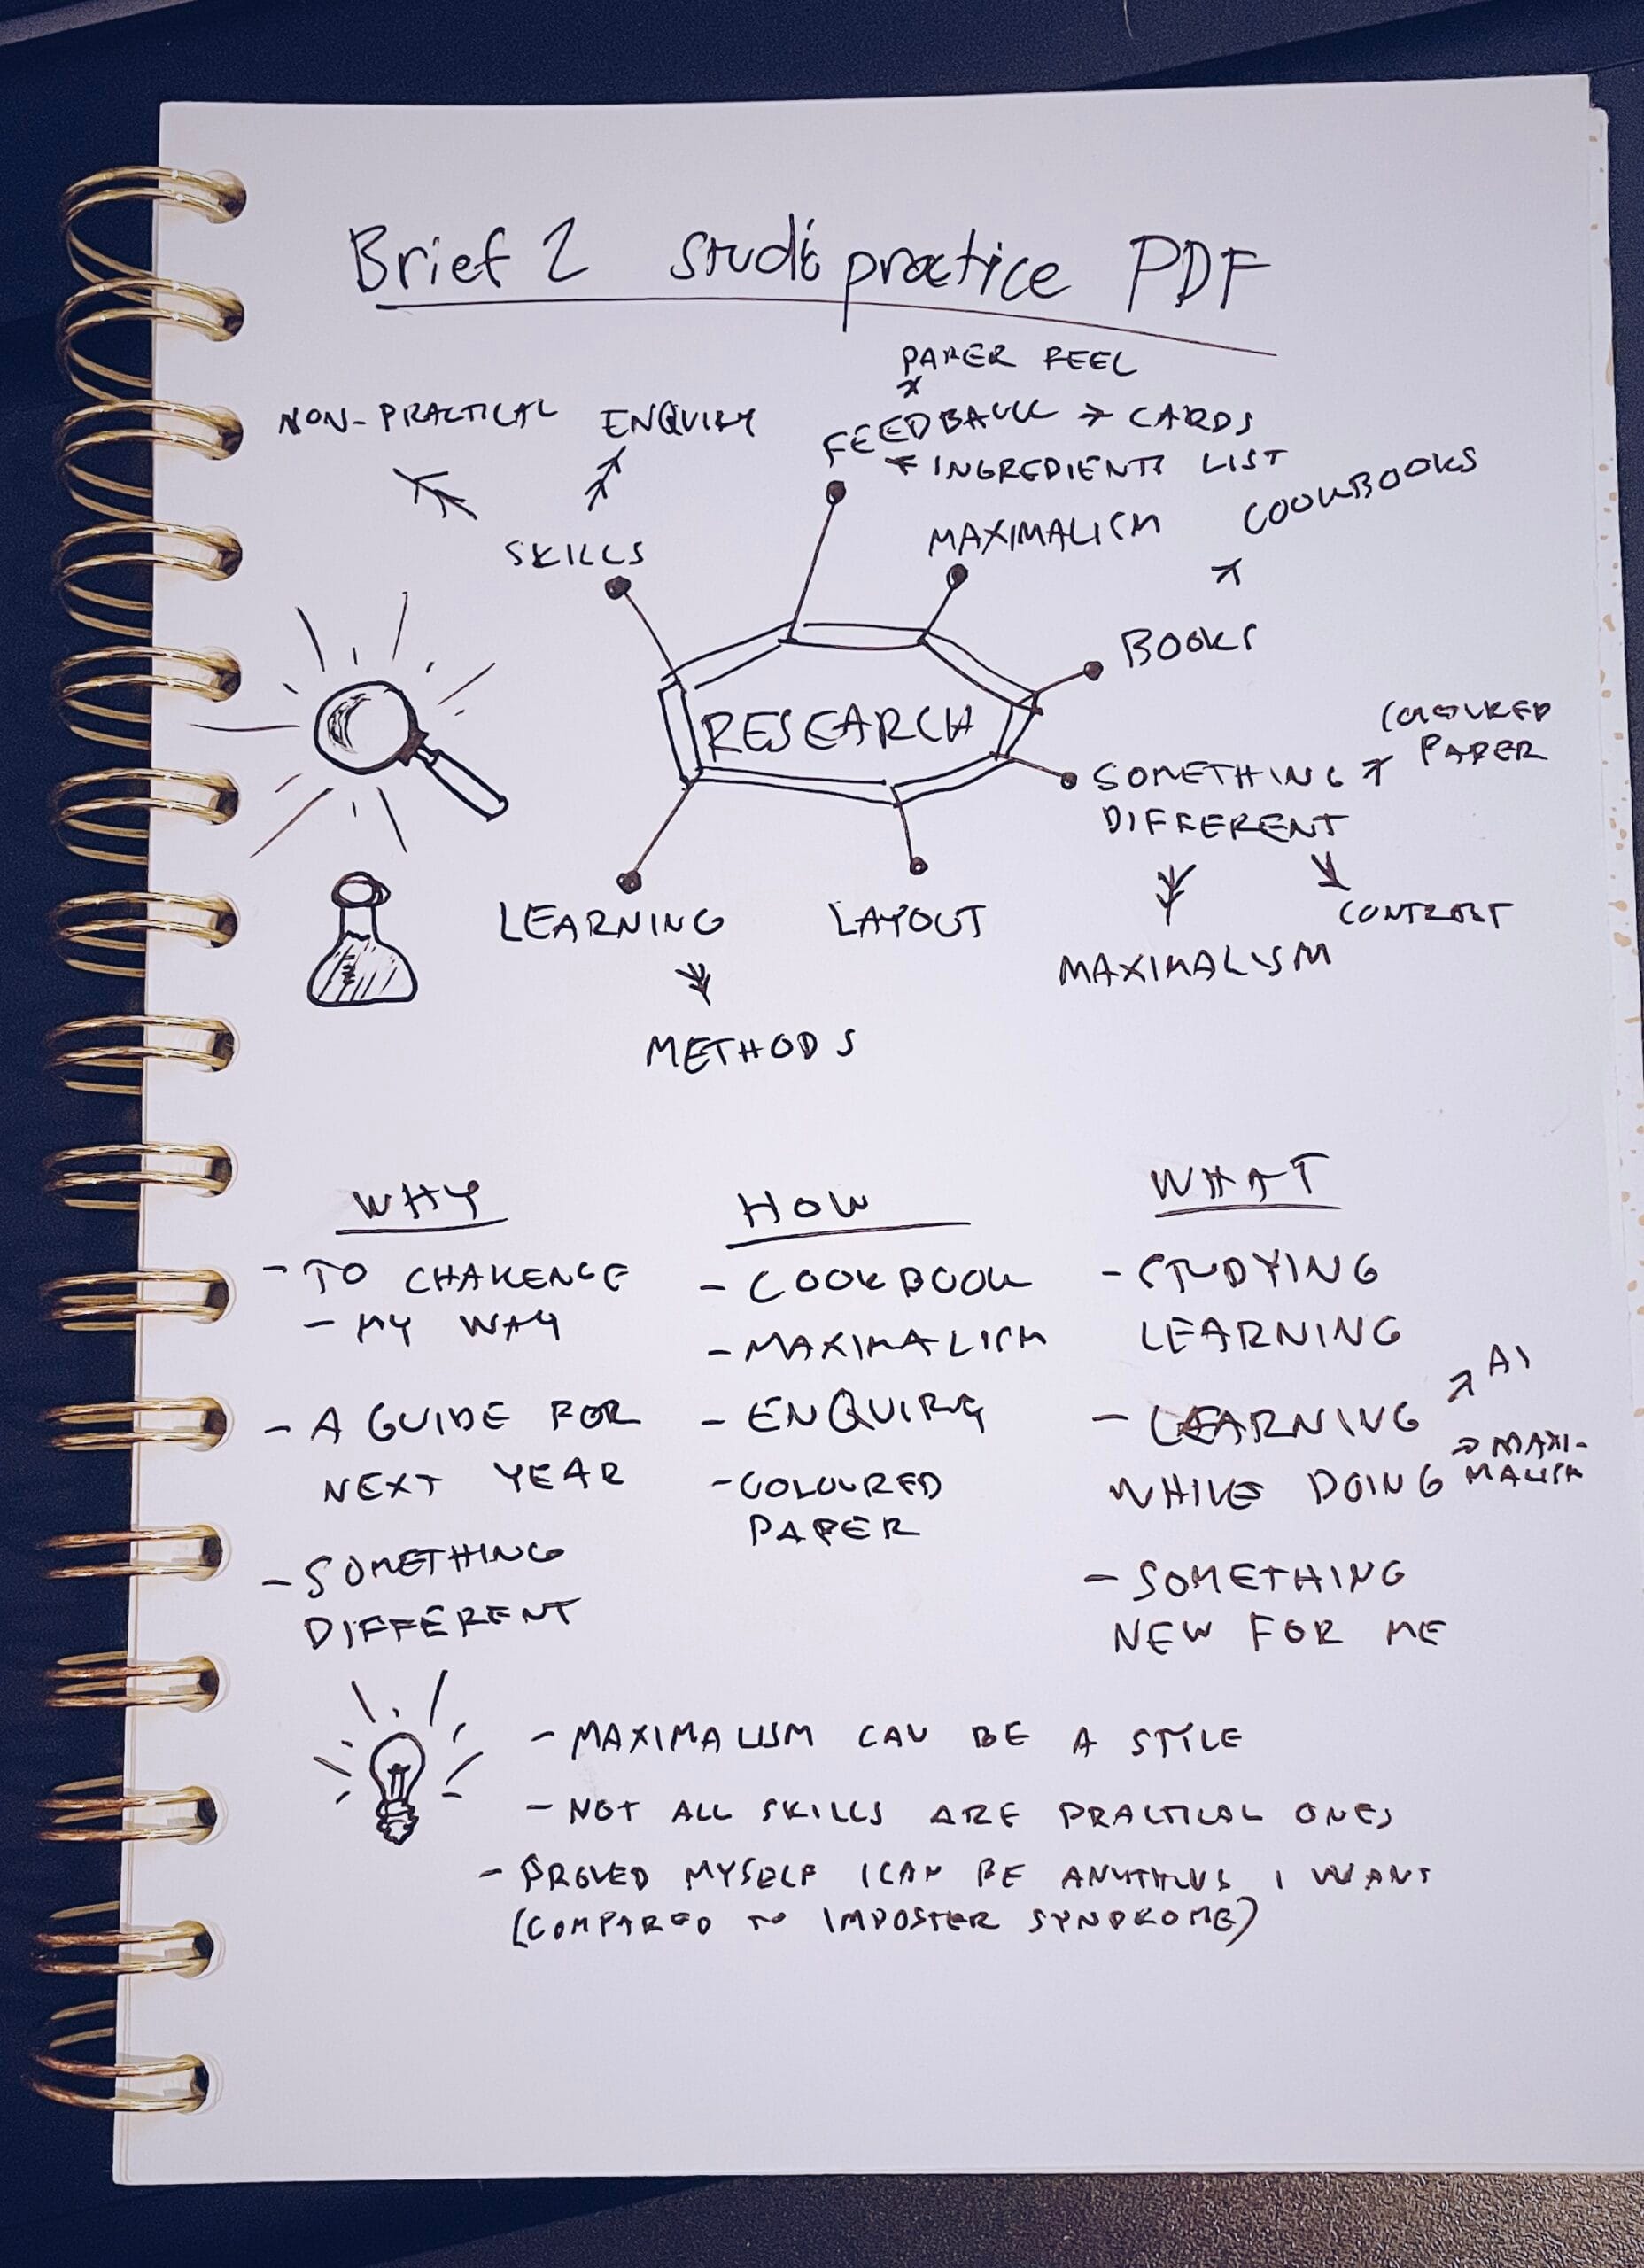 Brief 2 studio practice PDF
PAPER FEEL
NON-PRACTICAL ENQUIRY
FEEDBACK → CARDS
INGREDIENTS LIST
COOKBOOKS
MAXIMALISM
SKILLS
BOOKS
RESEARCH
COLOURED
PAPER
SOMETHING
DIFFERENT
LEARNING LAYOUT
CONTRAST
MAXIMALISM
METHODS
WHY
- TO CHALLENGE
- MY WAY
- A GUIDE FOR
NEXT YEAR
- SOMETHING
DIFFERENT
HOW
- COOKBOOK
- MAXIMALISM
- ENQUIRY
- COLOURED
PAPER
WHAT
- STUDYING
LEARNING
- LEARNING ↗ AI
WHILE DOING → MAXI-
MALISM
- SOMETHING
NEW FOR ME
- MAXIMALISM CAN BE A STYLE
- NOT ALL SKILLS ARE PRACTICAL ONES
- PROVED MYSELF I CAN BE ANYTHING I WANT
(COMPARED TO IMPOSTER SYNDROME)